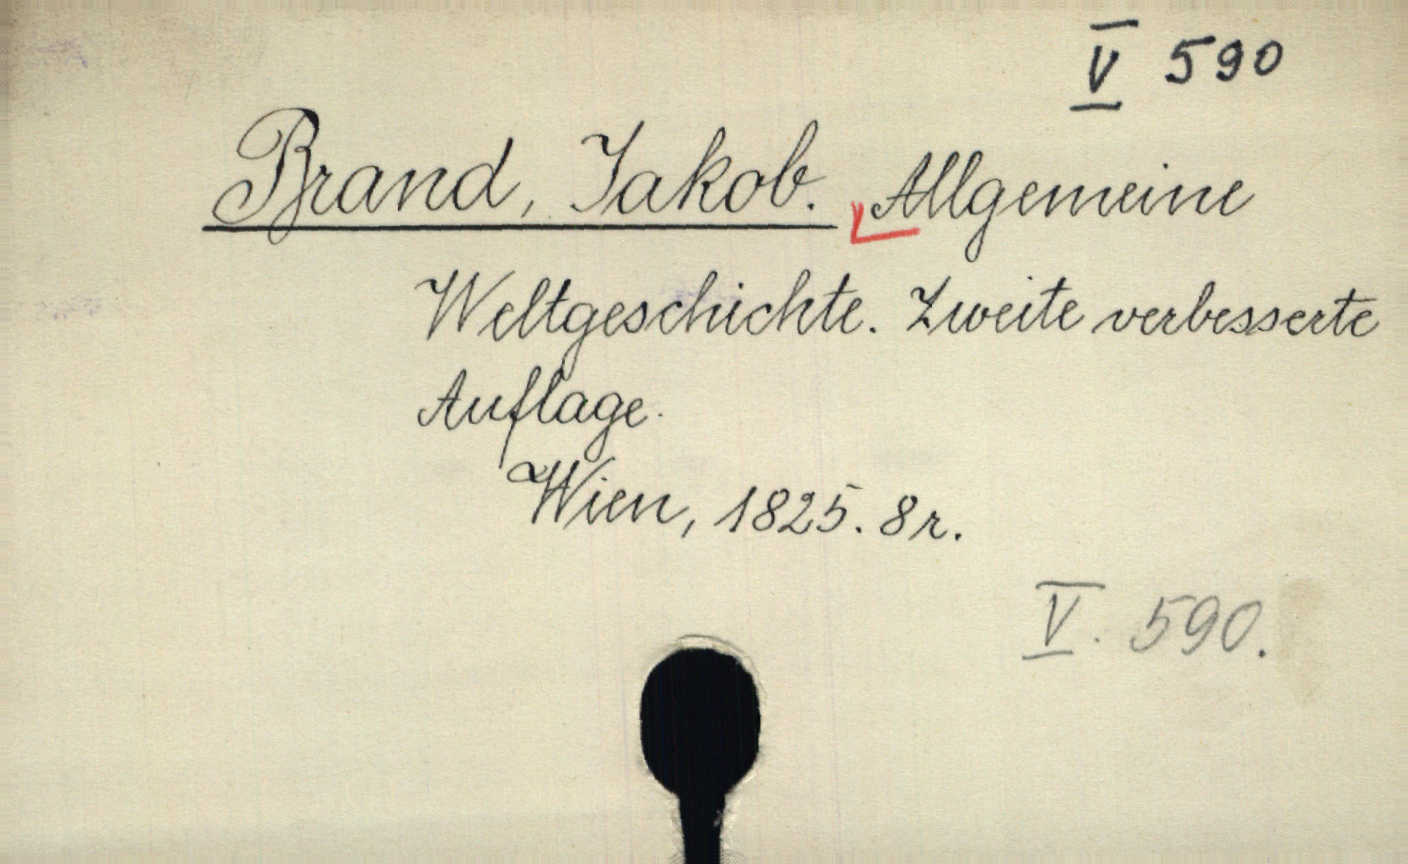 V 590
Brand, Jakob. Allgemeine
Weltgeschichte. Zweite verbesserte
Auflage.
Wien, 1825. 8r.
V. 590.